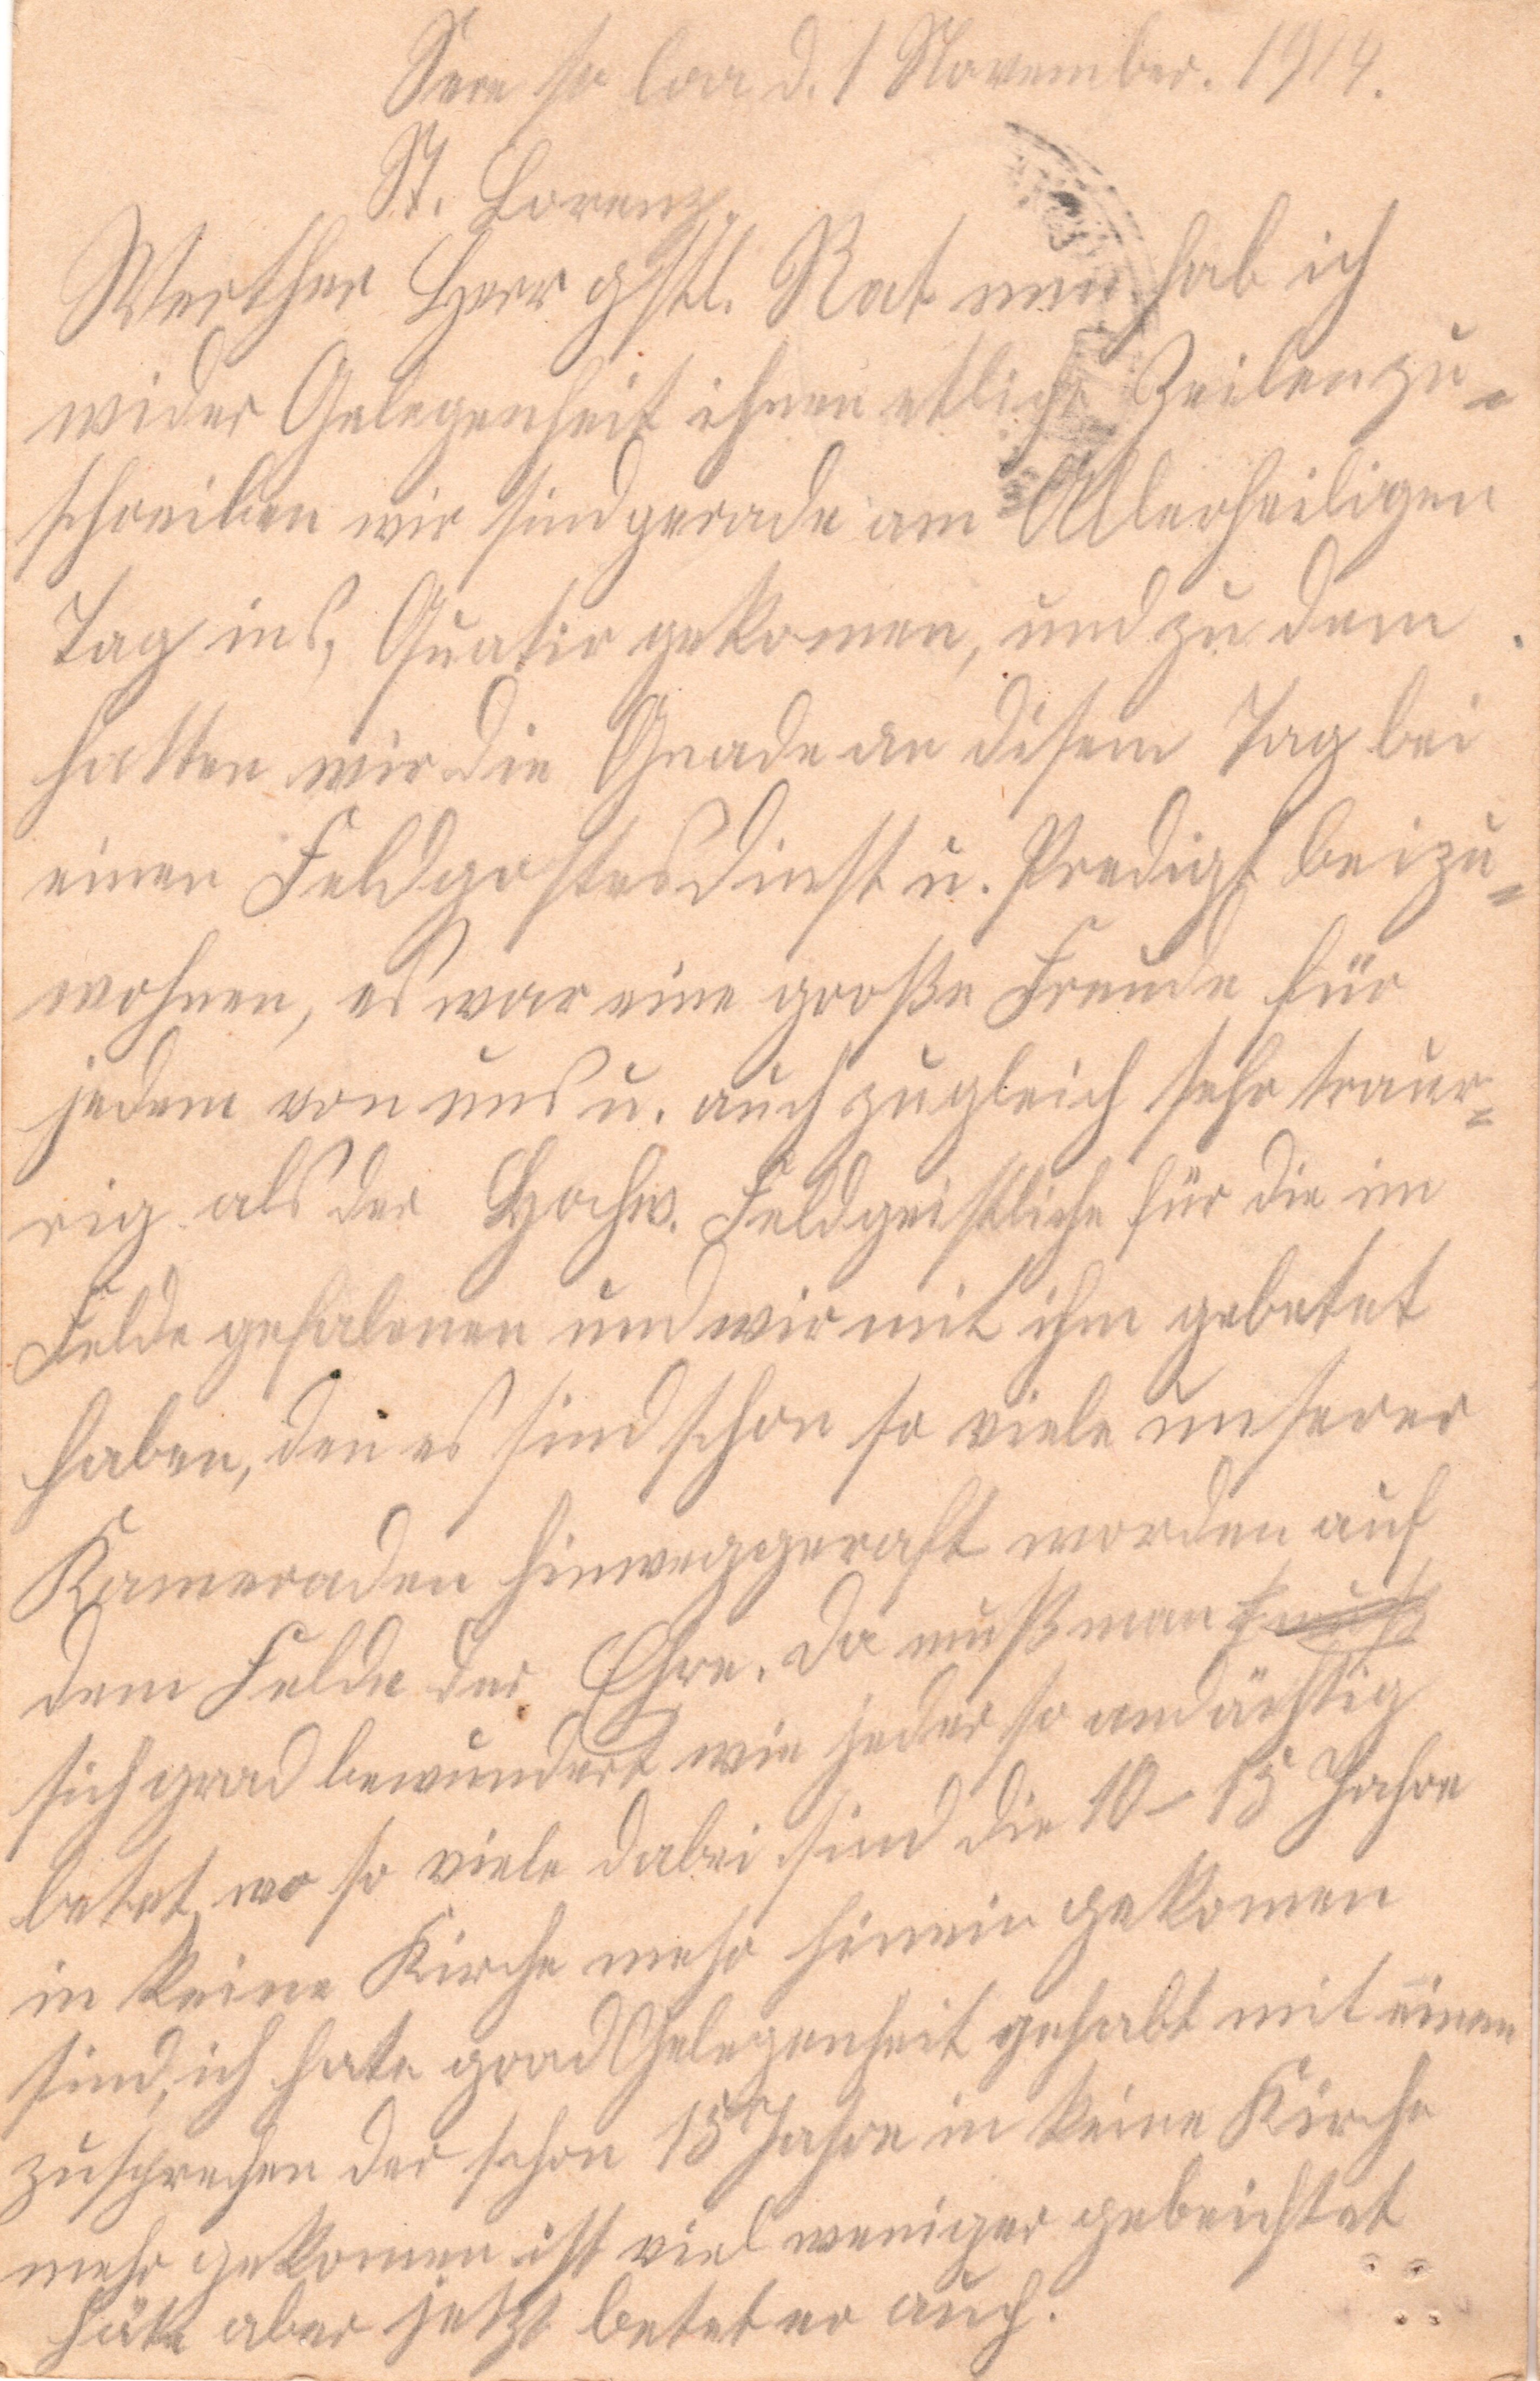 d. 1 November. 1914.
St. Lorenz.
Werther Herr gstl. Rat nun hab ich
wider Gelegenheit ihnen etliche Zeilen zu-
schreiben wir sind gerade am Allerheiligen
Tag ins, Quatir gekomen, und zu dem
hatten wir die Gnade an disem Tag bei
einen Feldgottesdinst u. Predigt beizu=
wohnen, es war eine große Freude für
jedem von uns u. auch zugleich sehr traur=
rig als der Hochw. Feldgeistliche für die im
Felde gefalenen und wir mit ihm gebetet
haben, den es sind schon so viele unserer
Kameraden hinweggeraft worden auf
dem Felde der Ehre. Da muß man
sich grad bewundert wie jeder so andächtig
betet, wo so viele dabei sind die 10-15 Jahre
in keine Kirche mehr hinein gekomen
sind, ich hate grad Gelegenheit gehabt mit einen
zusprechen der schon 15 Jahre in keine Kirche
mehr gekomen ist viel weniger gebeichtet
häte aber jetzt betet er auch.